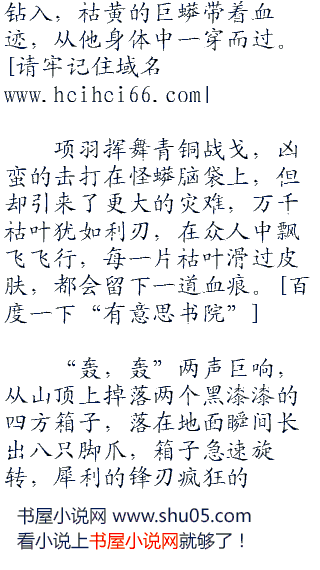 钻入，枯黄的巨蟒带着血
迹，从他身体中一穿而过。
[请牢记住域名
www.hcihci66.com|
项羽挥舞青铜战戈，凶
蛮的击打在怪蟒脑袋上，但
却引来了更大的灾难，万千
枯叶犹如利刃，在众人中飘
飞飞行，每一片枯叶滑过皮
肤，都会留下一道血痕。[百
度一下“有意思书院”]
“轰，轰”两声巨响，
从山顶上掉落两个黑漆漆的
四方箱子，落在地面瞬间长
出八只脚爪，箱子急速旋
转，犀利的锋刃疯狂的
书屋小说网 www.shu05.com
看小说上书屋小说网就够了！